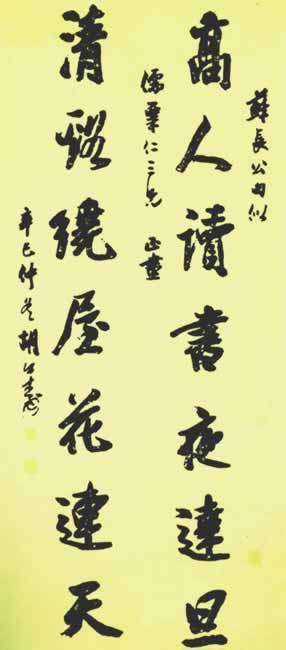 蘇長公句似
高人讀書夜達旦
仁三兄 正
清谿繞屋花連天
辛巳仲冬胡公壽